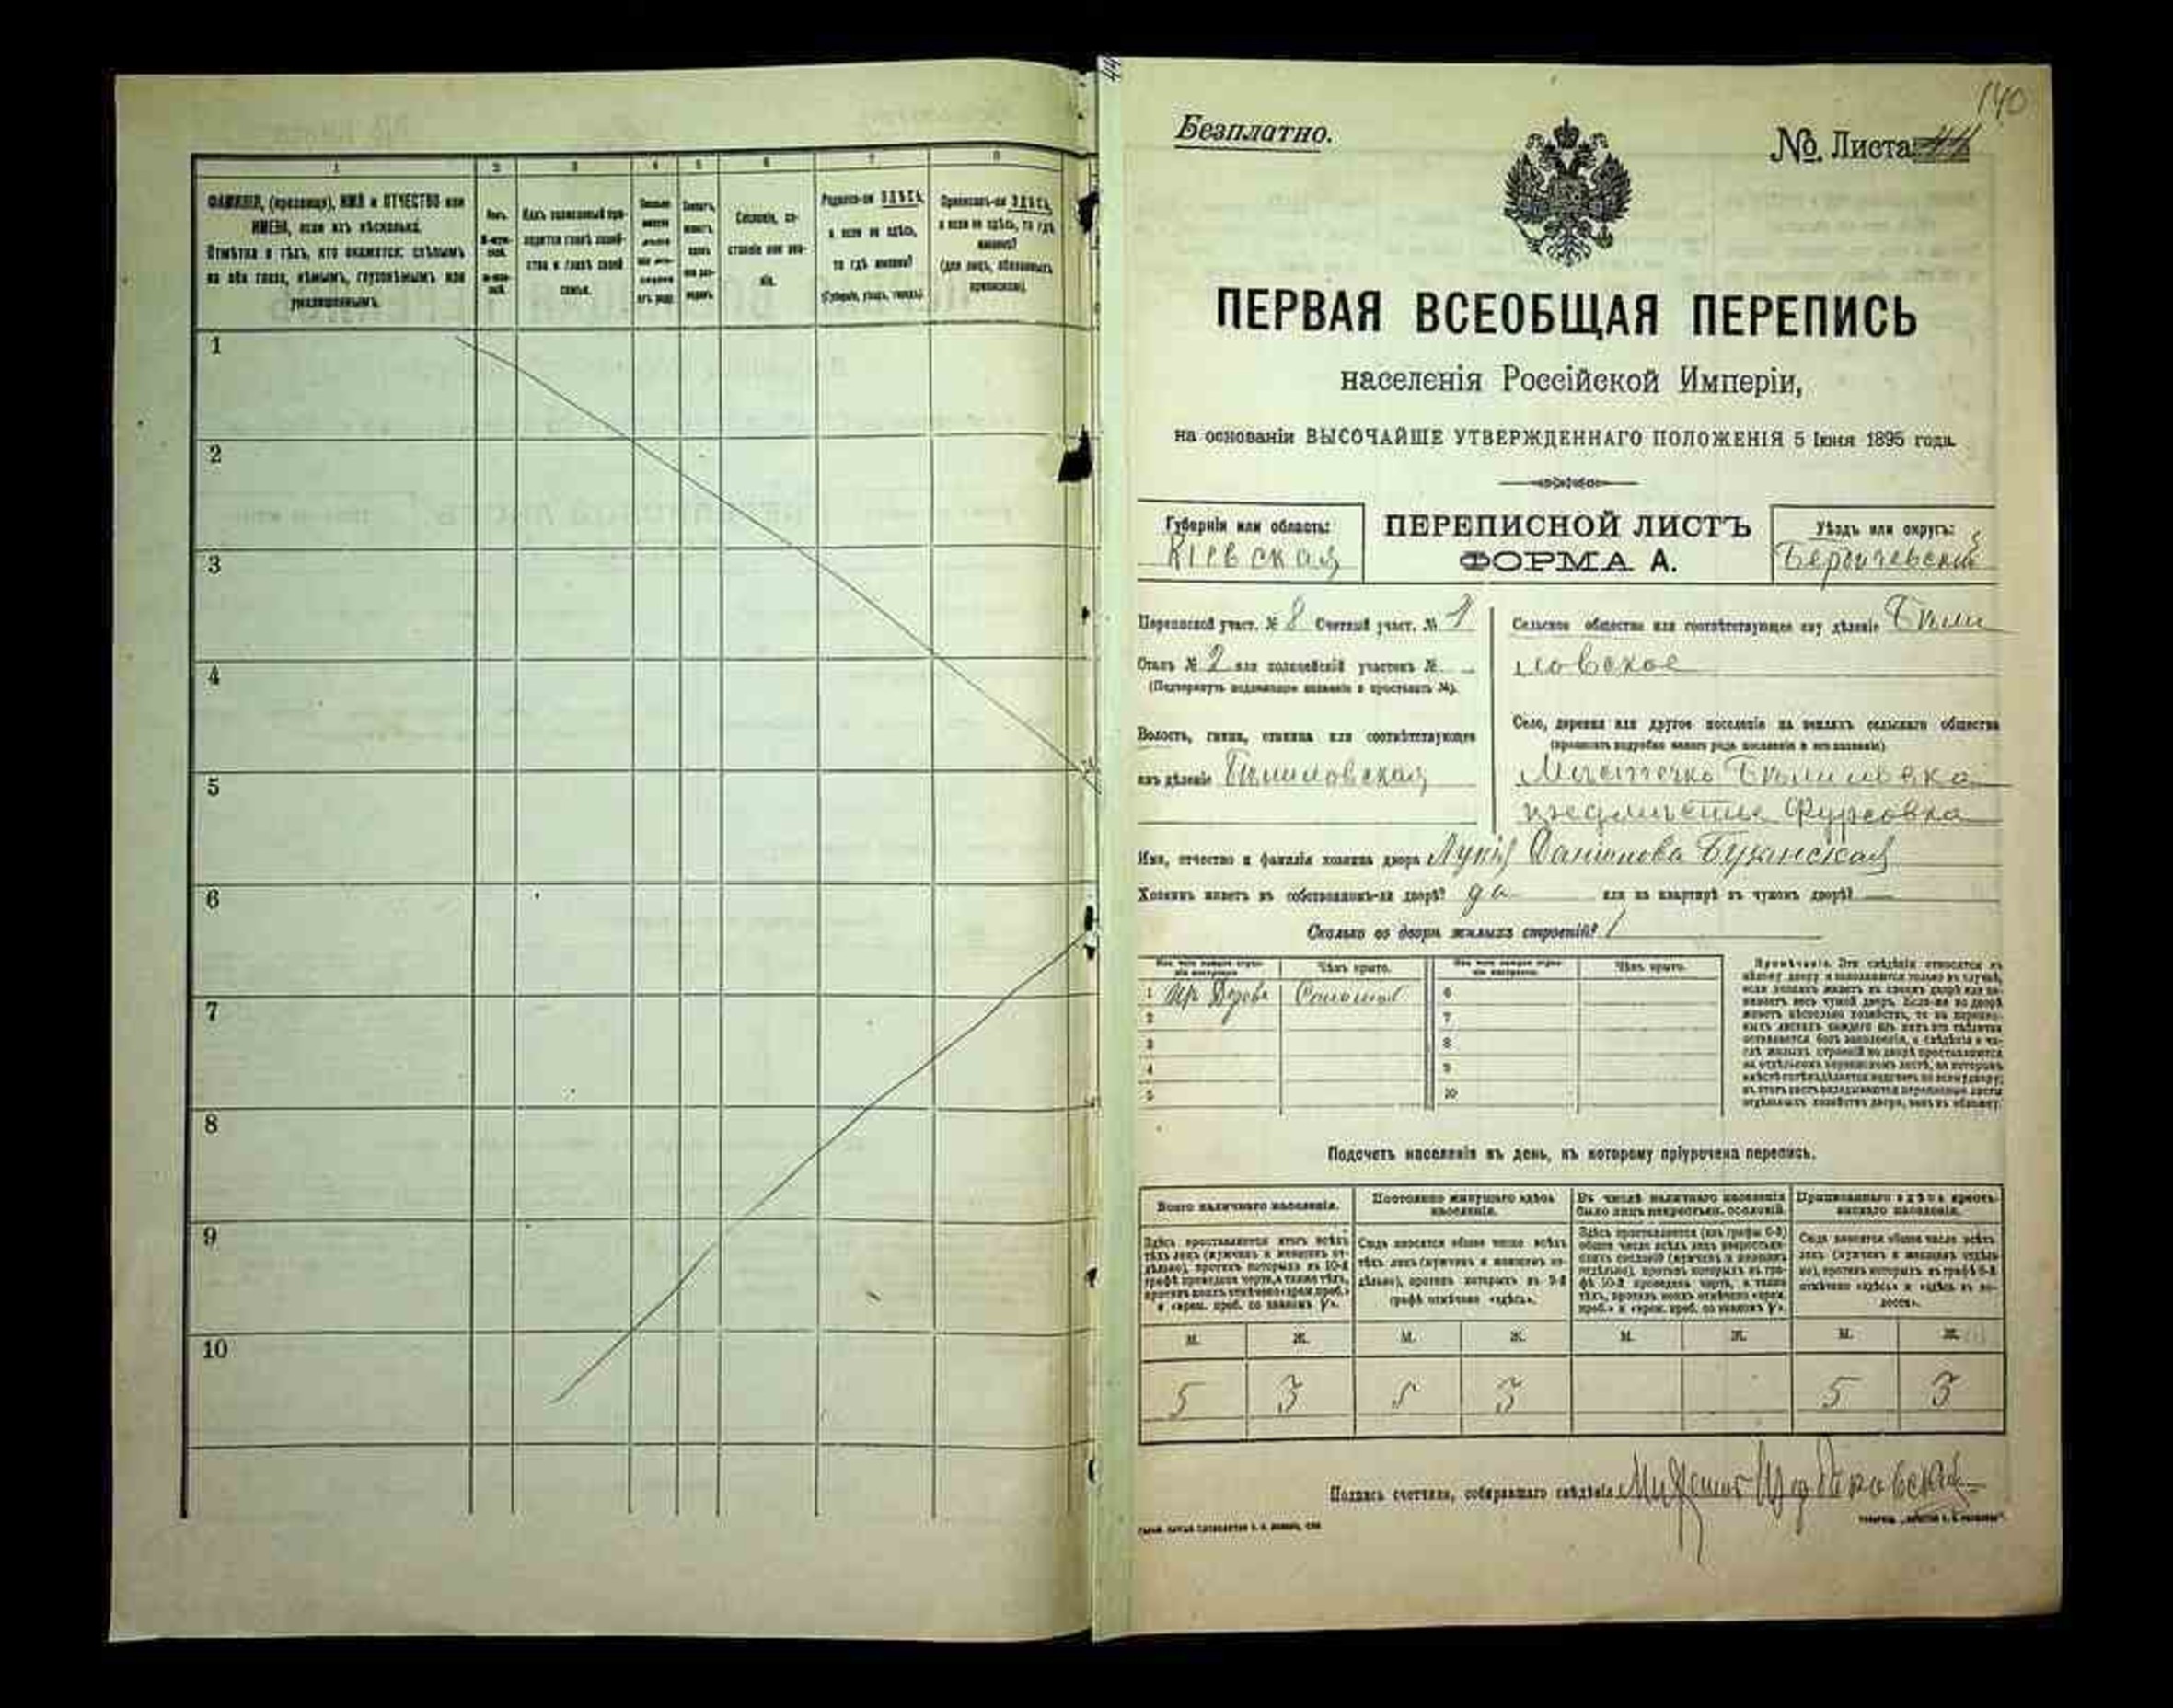 1
2
3
4
5
6
7
8
ФАМИЛІЯ, (прозвище), ИМЯ и ОТЧЕСТВО или
ИМЕНА, если ихъ нѣсколько.
Отмѣтка о тѣхъ, кто окажется: слѣпымъ
на оба глаза, нѣмымъ, глухонѣмымъ или
умалишеннымъ.
Полъ.
Какъ записанный при-
ходится главѣ хозяй-
ства и главѣ своей
семьи.
Сословіе, со-
стояніе или зва-
ніе.
Родился-ли ЗДѢСЬ,
а если не здѣсь,
то гдѣ именно?
(Губернія, уѣздъ, городъ)
Приписанъ-ли ЗДѢСЬ,
а если не здѣсь, то гдѣ
именно?
(для лицъ, обязанныхъ
припискою)
1
2
3
4
5
6
7
8
9
10
44
140
Безплатно.
№ Листа 44
ПЕРВАЯ ВСЕОБЩАЯ ПЕРЕПИСЬ
населенія Россійской Имперіи,
на основаніи ВЫСОЧАЙШЕ УТВЕРЖДЕННАГО ПОЛОЖЕНІЯ 5 Іюня 1895 года.
Губернія или область:
Кіевская
ПЕРЕПИСНОЙ ЛИСТЪ
ФОРМА А.
Уѣздъ или округъ:
Бердичевскій
Переписной участ. № 8 Счетный участ. № 1
Станъ № 2 или полицейскій участокъ №
(Подчеркнуть подлежащее названіе и проставить №).
Волость, гмина, станица или соотвѣтствующее
имъ дѣленіе Бѣлиловская
Сельское общество или соотвѣтствующее ему дѣленіе Бѣли
ловское
Село, деревня или другое поселеніе на земляхъ сельскаго общества
(прописать подробно какого рода поселеніе и его названіе)
Мѣстечко Бѣлиловка
предмѣстье Фурсовка
Имя, отчество и фамилія хозяина двора
Хозяинъ живетъ въ собственномъ-ли дворѣ? да или на квартирѣ въ чужомъ дворѣ?
Сколько во дворѣ жилыхъ строеній? 1
Изъ чего каждое строе-
ніе построено
Чѣмъ крыто.
Изъ чего каждое строе-
ніе построено.
Чѣмъ крыто.
1 Изъ Дерева Соломой
2
3
4
5
6
7
8
9
10
Примѣчаніе. Эти свѣдѣнія относятся къ
цѣлому двору и заполняются только въ случаѣ,
если хозяинъ живетъ въ своемъ дворѣ или за-
нимаетъ весь чужой дворъ. Если-же во дворѣ
живетъ нѣсколько хозяйствъ, то на перепис-
ныхъ листахъ каждаго изъ нихъ эти свѣдѣнія
оставляются безъ заполненія, а свѣдѣнія о чи-
слѣ жилыхъ строеній во дворѣ проставляются
на отдѣльномъ переписномъ листѣ, на которомъ
Подсчетъ населенія въ день, къ которому пріурочена перепись.
Всего наличнаго населенія.
Постоянно живущаго здѣсь
населенія.
Въ числѣ наличнаго населенія
было лицъ некрестьян. сословій.
Приписаннаго здѣсь кресть-
янскаго населенія.
Здѣсь проставляется итогъ всѣхъ
тѣхъ лицъ (мужчинъ и женщинъ от-
дѣльно), противъ которыхъ въ 10-й
графѣ проведена черта, а также тѣхъ,
противъ коихъ отмѣчено «врем. преб.»
и «врем. преб. со знакомъ V».
Сюда вносится общее число всѣхъ
тѣхъ лицъ (мужчинъ и женщинъ от-
дѣльно), противъ которыхъ въ 9-й
графѣ отмѣчено «здѣсь».
Здѣсь проставляется (изъ графы 6-й)
общее число всѣхъ лицъ некрестьян-
скихъ сословій (мужчинъ и женщинъ
отдѣльно), противъ которыхъ въ гра-
фѣ 10-й проведена черта, а также
тѣхъ, противъ коихъ отмѣчено «врем.
преб.» и «врем. преб. со знакомъ V».
Сюда вносится общее число всѣхъ
лицъ (мужчинъ и женщинъ отдѣль-
но), противъ которыхъ въ графѣ 8-й
отмѣчено «здѣсь» и «здѣсь въ во-
лости».
М. Ж. М. Ж. М. Ж. М. Ж.
5 3 5 3 5 3
Подпись счетчика, собиравшаго свѣдѣнія